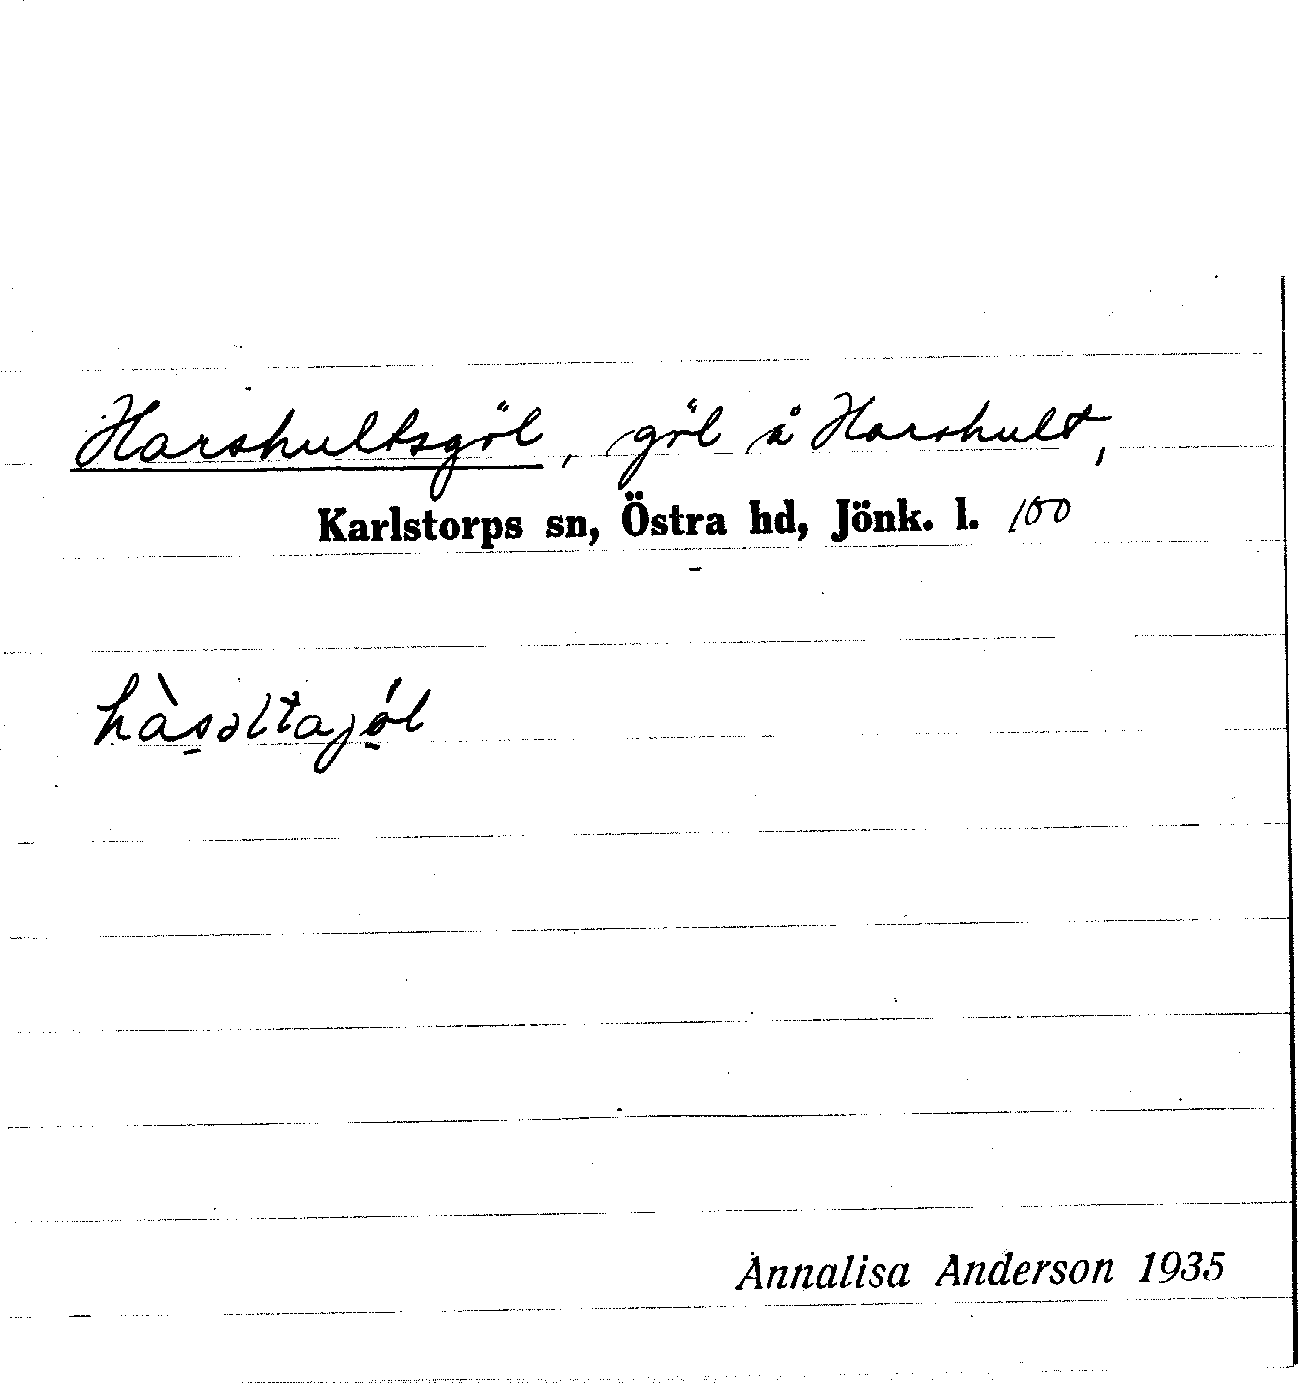 Harshultsgöl, göl å Harshult,
Karlstorps sn, Östra hd, Jönk. l. 100
hàs̱əltajǿ̱l
Annalisa Anderson 1935